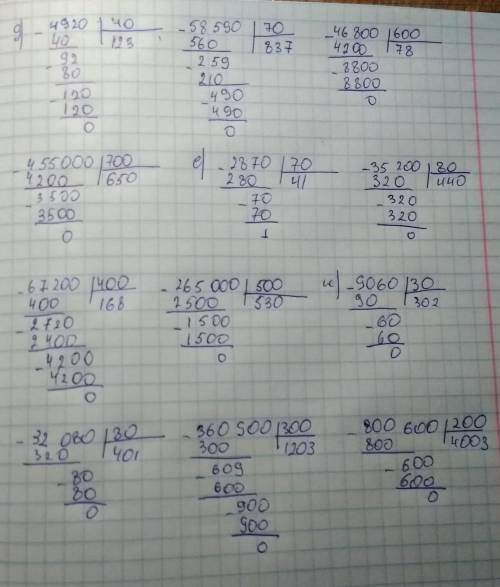 д) - 4920 | 40 - 58590 | 70 - 46800 | 600
40 123 560 837 4200 78
- 92 - 259 - 8800
80 210 8800
- 120 - 490 0
120 490
0 0
- 455000 | 700 е) - 2870 | 70 - 35 200 | 80
4200 650 280 41 320 440
- 3500 - 70 - 320
3500 70 320
0 1 0
- 67200 | 400 - 265 000 | 500 и) - 9060 | 30
400 168 2500 530 90 302
- 2720 - 1500 - 60
2400 1500 60
- 4200 0 0
4200
0
- 32 080 | 80 - 360 900 | 300 - 800 600 | 200
320 401 300 1203 800 4003
- 80 - 609 - 600
80 600 600
0 - 900 0
900
0